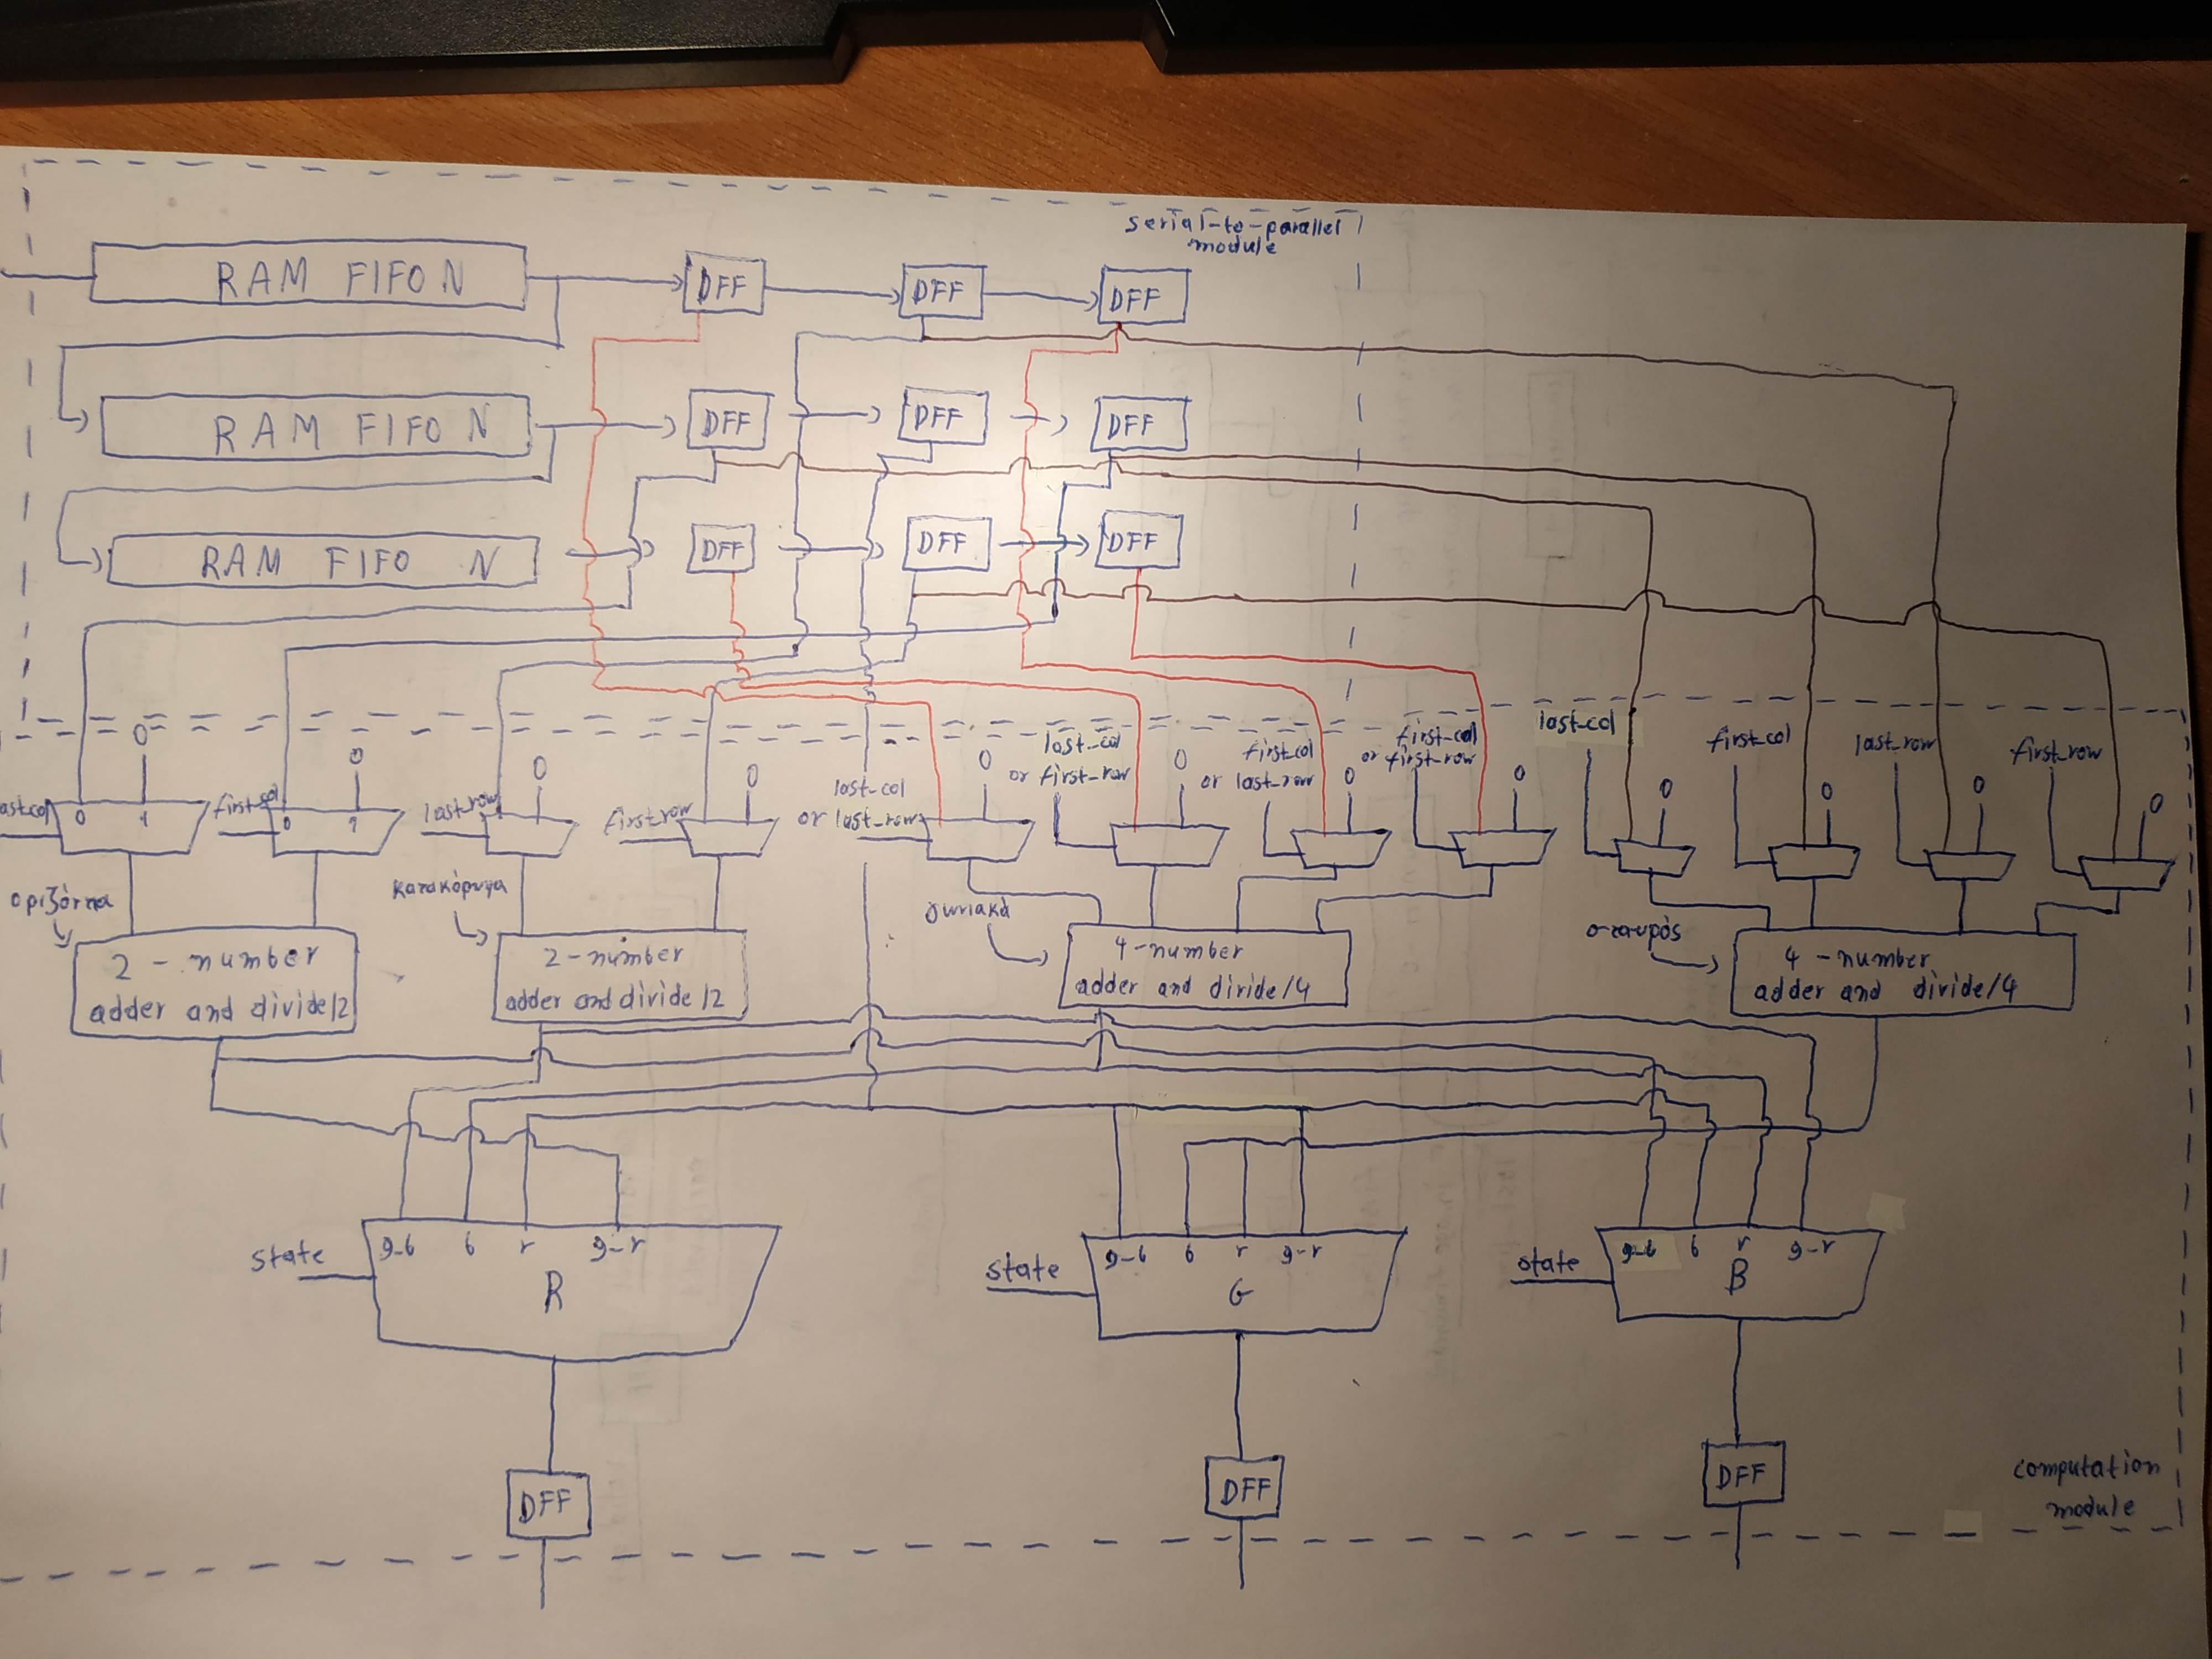 serial-to-parallel
module
RAM FIFO N
DFF
DFF
DFF
RAM FIFO N
DFF
DFF
DFF
RAM FIFO N
DFF
DFF
DFF
last_col
0
0
1
first_col
0
0
1
last_row
0
first_row
0
last-col
or last-row
0
last-col
or first-row
0
first-col
or last-row
0
first-col
or first-row
0
last-col
0
first-col
0
last-row
0
first-row
0
οριζόντια
κατακόρυφα
γωνιακά
σταυρός
2 - number
adder and divide/2
2-number
adder and divide/2
4-number
adder and divide/4
4-number
adder and divide/4
state
g-b b r g-r
R
state
g-b b r g-r
G
state
g-b b r g-r
B
DFF
DFF
DFF
computation
module